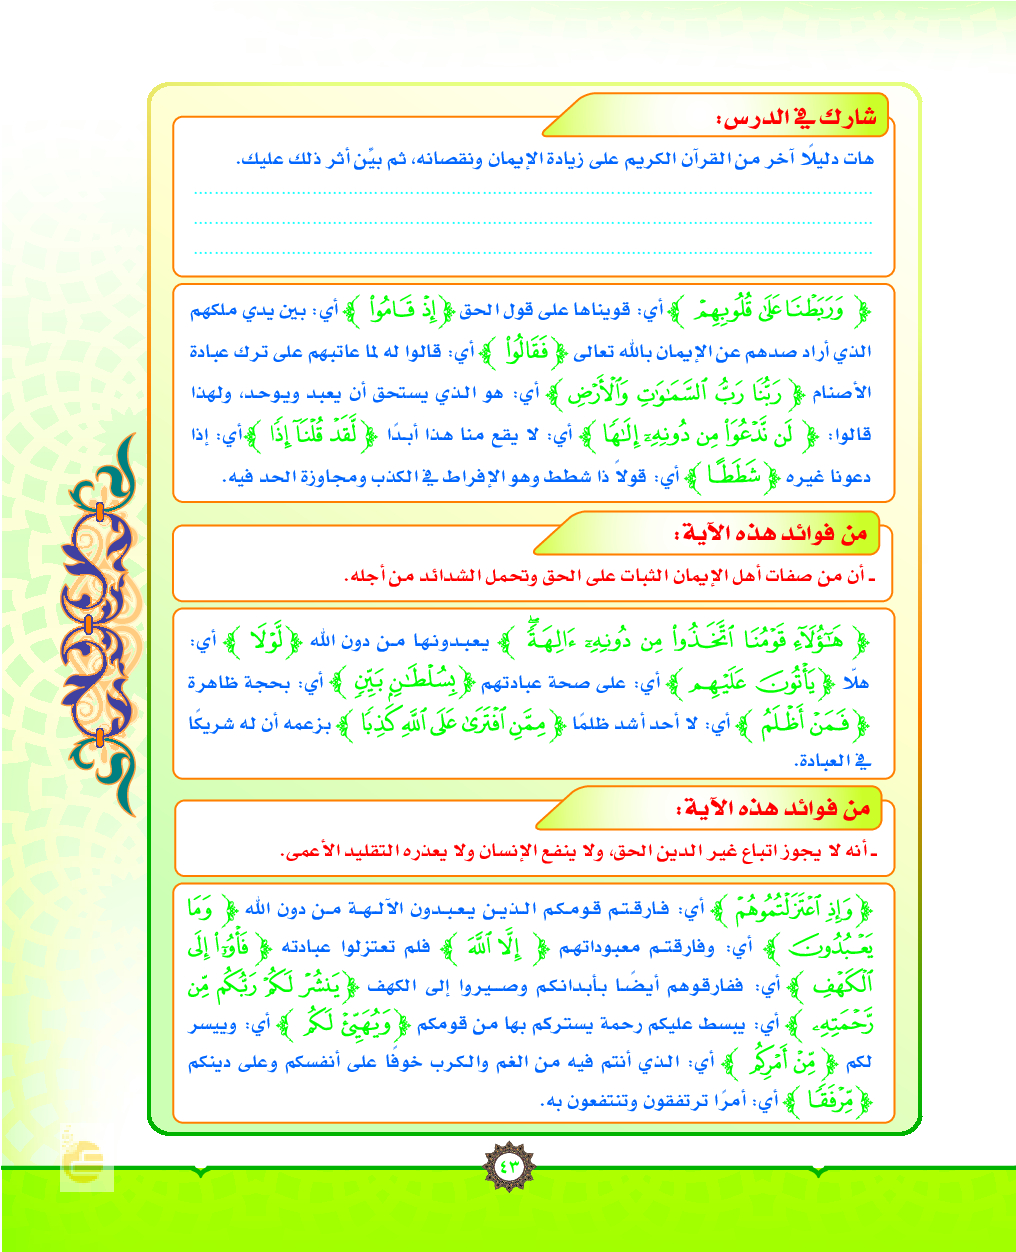 شارك في الدرس:
هات دليلًا آخر من القرآن الكريم على زيادة الإيمان ونقصانه، ثم بيِّن أثر ذلك عليك.
﴿ وَرَبَطْنَا عَلَىٰ قُلُوبِهِمْ ﴾ أي: قويناها على قول الحق ﴿إِذْ قَامُوا۟ ﴾ أي: بين يدي ملكهم
الذي أراد صدهم عن الإيمان بالله تعالى ﴿فَقَالُوا۟ ﴾ أي: قالوا له لما عاتبهم على ترك عبادة
الأصنام ﴿ رَبُّنَا رَبُّ ٱلسَّمَـٰوَٰتِ وَٱلْأَرْضِ﴾ أي: هو الذي يستحق أن يعبد ويوحد، ولهذا
قالوا: ﴿ لَن نَّدْعُوَا۟ مِن دُونِهِۦٓ إِلَـٰهًا ﴾ أي: لا يقع منا هذا أبدًا ﴿لَّقَدْ قُلْنَآ إِذًا ﴾ أي: إذا
دعونا غيره ﴿ شَطَطًا ﴾ أي: قولاً ذا شطط وهو الإفراط في الكذب ومجاوزة الحد فيه.
من فوائد هذه الآية:
ـ أن من صفات أهل الإيمان الثبات على الحق وتحمل الشدائد من أجله.
﴿ هَـٰٓؤُلَآءِ قَوْمُنَا ٱتَّخَذُوا۟ مِن دُونِهِۦٓ ءَالِهَةً ۖ ﴾ يعبدونها من دون الله ﴿لَّوْلَا ﴾ أي:
هلّا ﴿يَأْتُونَ عَلَيْهِم ﴾ أي: على صحة عبادتهم ﴿بِسُلْطَـٰنٍۭ بَيِّنٍ ﴾ أي: بحجة ظاهرة
﴿ فَمَنْ أَظْلَمُ ﴾ أي: لا أحد أشد ظلمًا ﴿مِمَّنِ ٱفْتَرَىٰ عَلَى ٱللَّهِ كَذِبًا ﴾ بزعمه أن له شريكًا
في العبادة.
من فوائد هذه الآية:
ـ أنه لا يجوز اتباع غير الدين الحق، ولا ينفع الإنسان ولا يعذره التقليد الأعمى.
﴿ وَإِذِ ٱعْتَزَلْتُمُوهُمْ ﴾ أي: فارقتم قومكم الذين يعبدون الآلهة من دون الله ﴿ وَمَا
يَعْبُدُونَ ﴾ أي: وفارقتم معبوداتهم ﴿ إِلَّا ٱللَّهَ ﴾ فلم تعتزلوا عبادته ﴿ فَأْوُۥٓا۟ إِلَى
ٱلْكَهْفِ ﴾ أي: ففارقوهم أيضًا بأبدانكم وصيروا إلى الكهف ﴿يَنشُرْ لَكُمْ رَبُّكُم مِّن
رَّحْمَتِهِۦ ﴾ أي: يبسط عليكم رحمة يستركم بها من قومكم ﴿وَيُهَيِّئْ لَكُم ﴾ أي: وييسر
لكم ﴿ مِّنْ أَمْرِكُم ﴾ أي: الذي أنتم فيه من الغم والكرب خوفًا على أنفسكم وعلى دينكم
﴿مِّرْفَقًا ﴾ أي: أمرًا ترتفقون وتنتفعون به.
٤٣